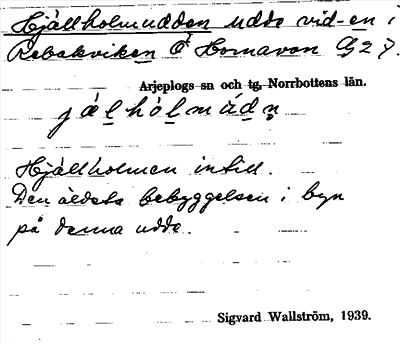 Hjällholmudden udde vid-en i
Rebakviken Ö Hornavan G27.
Arjeplogs sn och tg, Norrbottens län.
jälhólmùdn
Hjällholmen intill.
Den äldsta bebyggelsen i byn
på denna udde.
Sigvard Wallström, 1939.